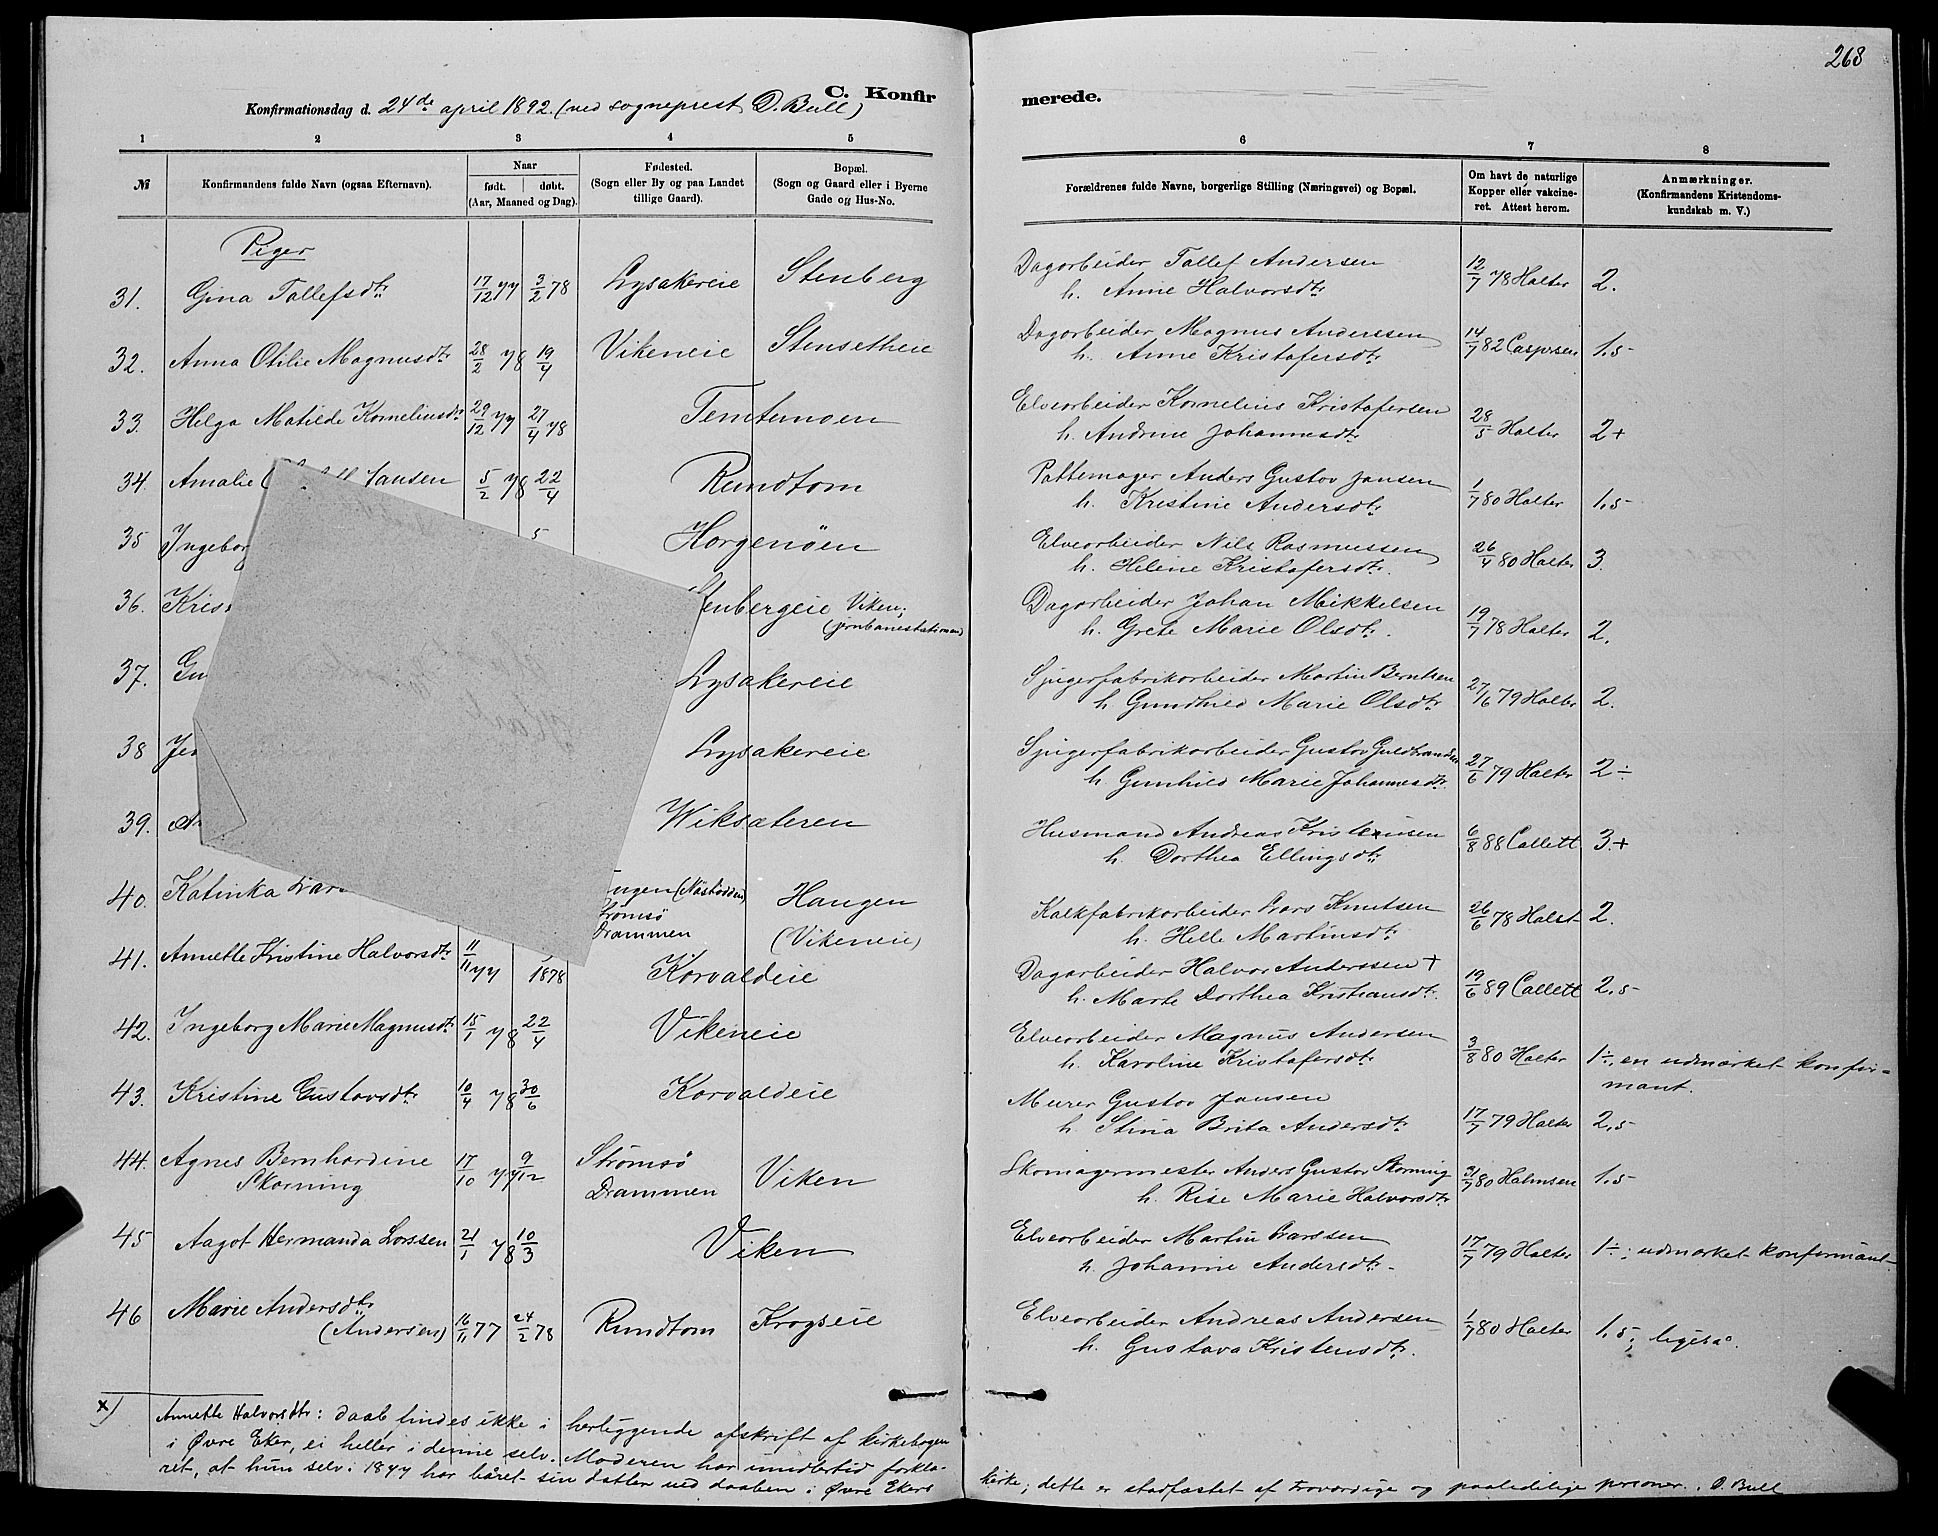 268
C. Konfirmerede.
Konfirmationsdag d. 24de april 1892. (ved sogneprest D. Bull)
1 2 3 4 5 6 7 8
№
Konfirmandens fulde Navn (ogsaa Efternavn).
Naar
født. døbt.
(Aar, Maaned og Dag).
Fødested.
(Sogn eller By og paa Landet
tillige Gaard).
Bopæl.
(Sogn og Gaard eller i Byerne
Gade og Hus-No.
Forældrenes fulde Navne, borgerlige Stilling (Næringsvei) og Bopæl.
Om havt de naturlige
Kopper eller vakcine-
ret. Attest herom.
Anmærkninger.
(Konfirmandens Kristendoms-
kundskab m. V.)
Piger
31. Gina Tollefsdtr 17/12 77 3/2 78 Lysakereie Stenberg Dagarbeider Tollef Andersen 12/7 78 Halter 2.
h. Anne Halvorsdtr
32. Anna Otilie Magnusdtr 28/2 78 19/4 Vikeneie Stensetheie Dagarbeider Magnus Anderssen 14/7 82 Caspersen 1,5
h. Anne Kristofersdtr
33. Helga Matilde Korneliusdtr 29/12 77 27/4 78 Temtemoen Elvearbeider Kornelius Kristofersen 28/5 Halter 2+
h. Andrine Johannesdtr
34. Amalie Jansen 5/2 78 22/4 Rundtom Pottemager Anders Gustav Jansen 1/7 80 Halter 1,5
h. Kristine Andersdtr
35 Ingeborg 5 Horgenöen Elvearbeider Nils Rasmussen 26/4 80 Halter 3.
h. Helene Kristofersdtr.
36. Kris Stenbergeie Viken; Dagarbeider Johan Mikkelsen 19/7 78 Halter 2.
(jernbanestationen) h. Grete Marie Olsdtr.
37. Gu Lysakereie Spigerfabrikarbeider Martin Berntsen 27/6 79 Halter 2.
h. Gundhild Marie Olsdtr
38 Jen Lysakereie Spigerfabrikarbeider Gustav Guldbrandsen 27/6 79 Halter 2÷
h. Gunhild Marie Johannesdtr.
39. Wiksæteren Husmand Andreas Kristensen 6/8 88 Collett 3.+
h. Dorthea Ellingsdtr
40. Katinka Lar ngen (Næstodden) Haugen Kalkfabrikarbeider Lars Knutsen 26/6 78 Halst 2.
Strömsö
Drammen (Vikeneie) h. Helle Martinsdtr
41. Annette Kristine Halvorsdtr 11/11 77 1878 Korvaldeie Dagarbeider Halvor Anderssen + 19/6 89 Collett 2,5
h. Marte Dorthea Kristiansdtr.
42. Ingeborg Marie Magnusdtr 15/1 78 22/4 Vikeneie Elvearbeider Magnus Andersen 3/8 80 Halter 1÷, en udmærket konfir-
h. Karoline Kristofersdtr mant.
43. Kristine Gustavsdtr 10/4 78 30/6 Korvaldeie Murer Gustav Jansen 17/7 79 Halter 2,5
h. Stina Brita Andersdtr
44. Agnes Bernhardine 17/10 77 9/12 Strömsö Viken Skomagermester Anders Gustav Skorning 31/7 80 Halmsen 1,5
Skorning Drammen h. Rise Marie Halvorsdtr
45 Aagot Hermanda Larssen 21/1 78 10/3 Viken Elvearbeider Martin Larssen 17/7 79 Halter 1÷; udmærket konfirmant
h. Johanne Andersdtr.
46 Marie Andersdtr 16/11 77 24/2 78 Rundtom Krogseie Elvearbeider Andreas Andersen 1/7 80 Halter 1,5; ligesaa.
(Andersen) h. Gustava Kristensdtr.
x) Annette Halvorsdtr: daab findes ikke i herliggende afskrift af kirkebogen
i Øvre Eker, ei heller i denne selv. Moderen har imidlertid forkla-
ret, at hun selv i 1877 har båret sin datter ved daaben i Øvre Ekers kirke; dette er stadfæstet af troværdige og paalidelige personer. D. Bull